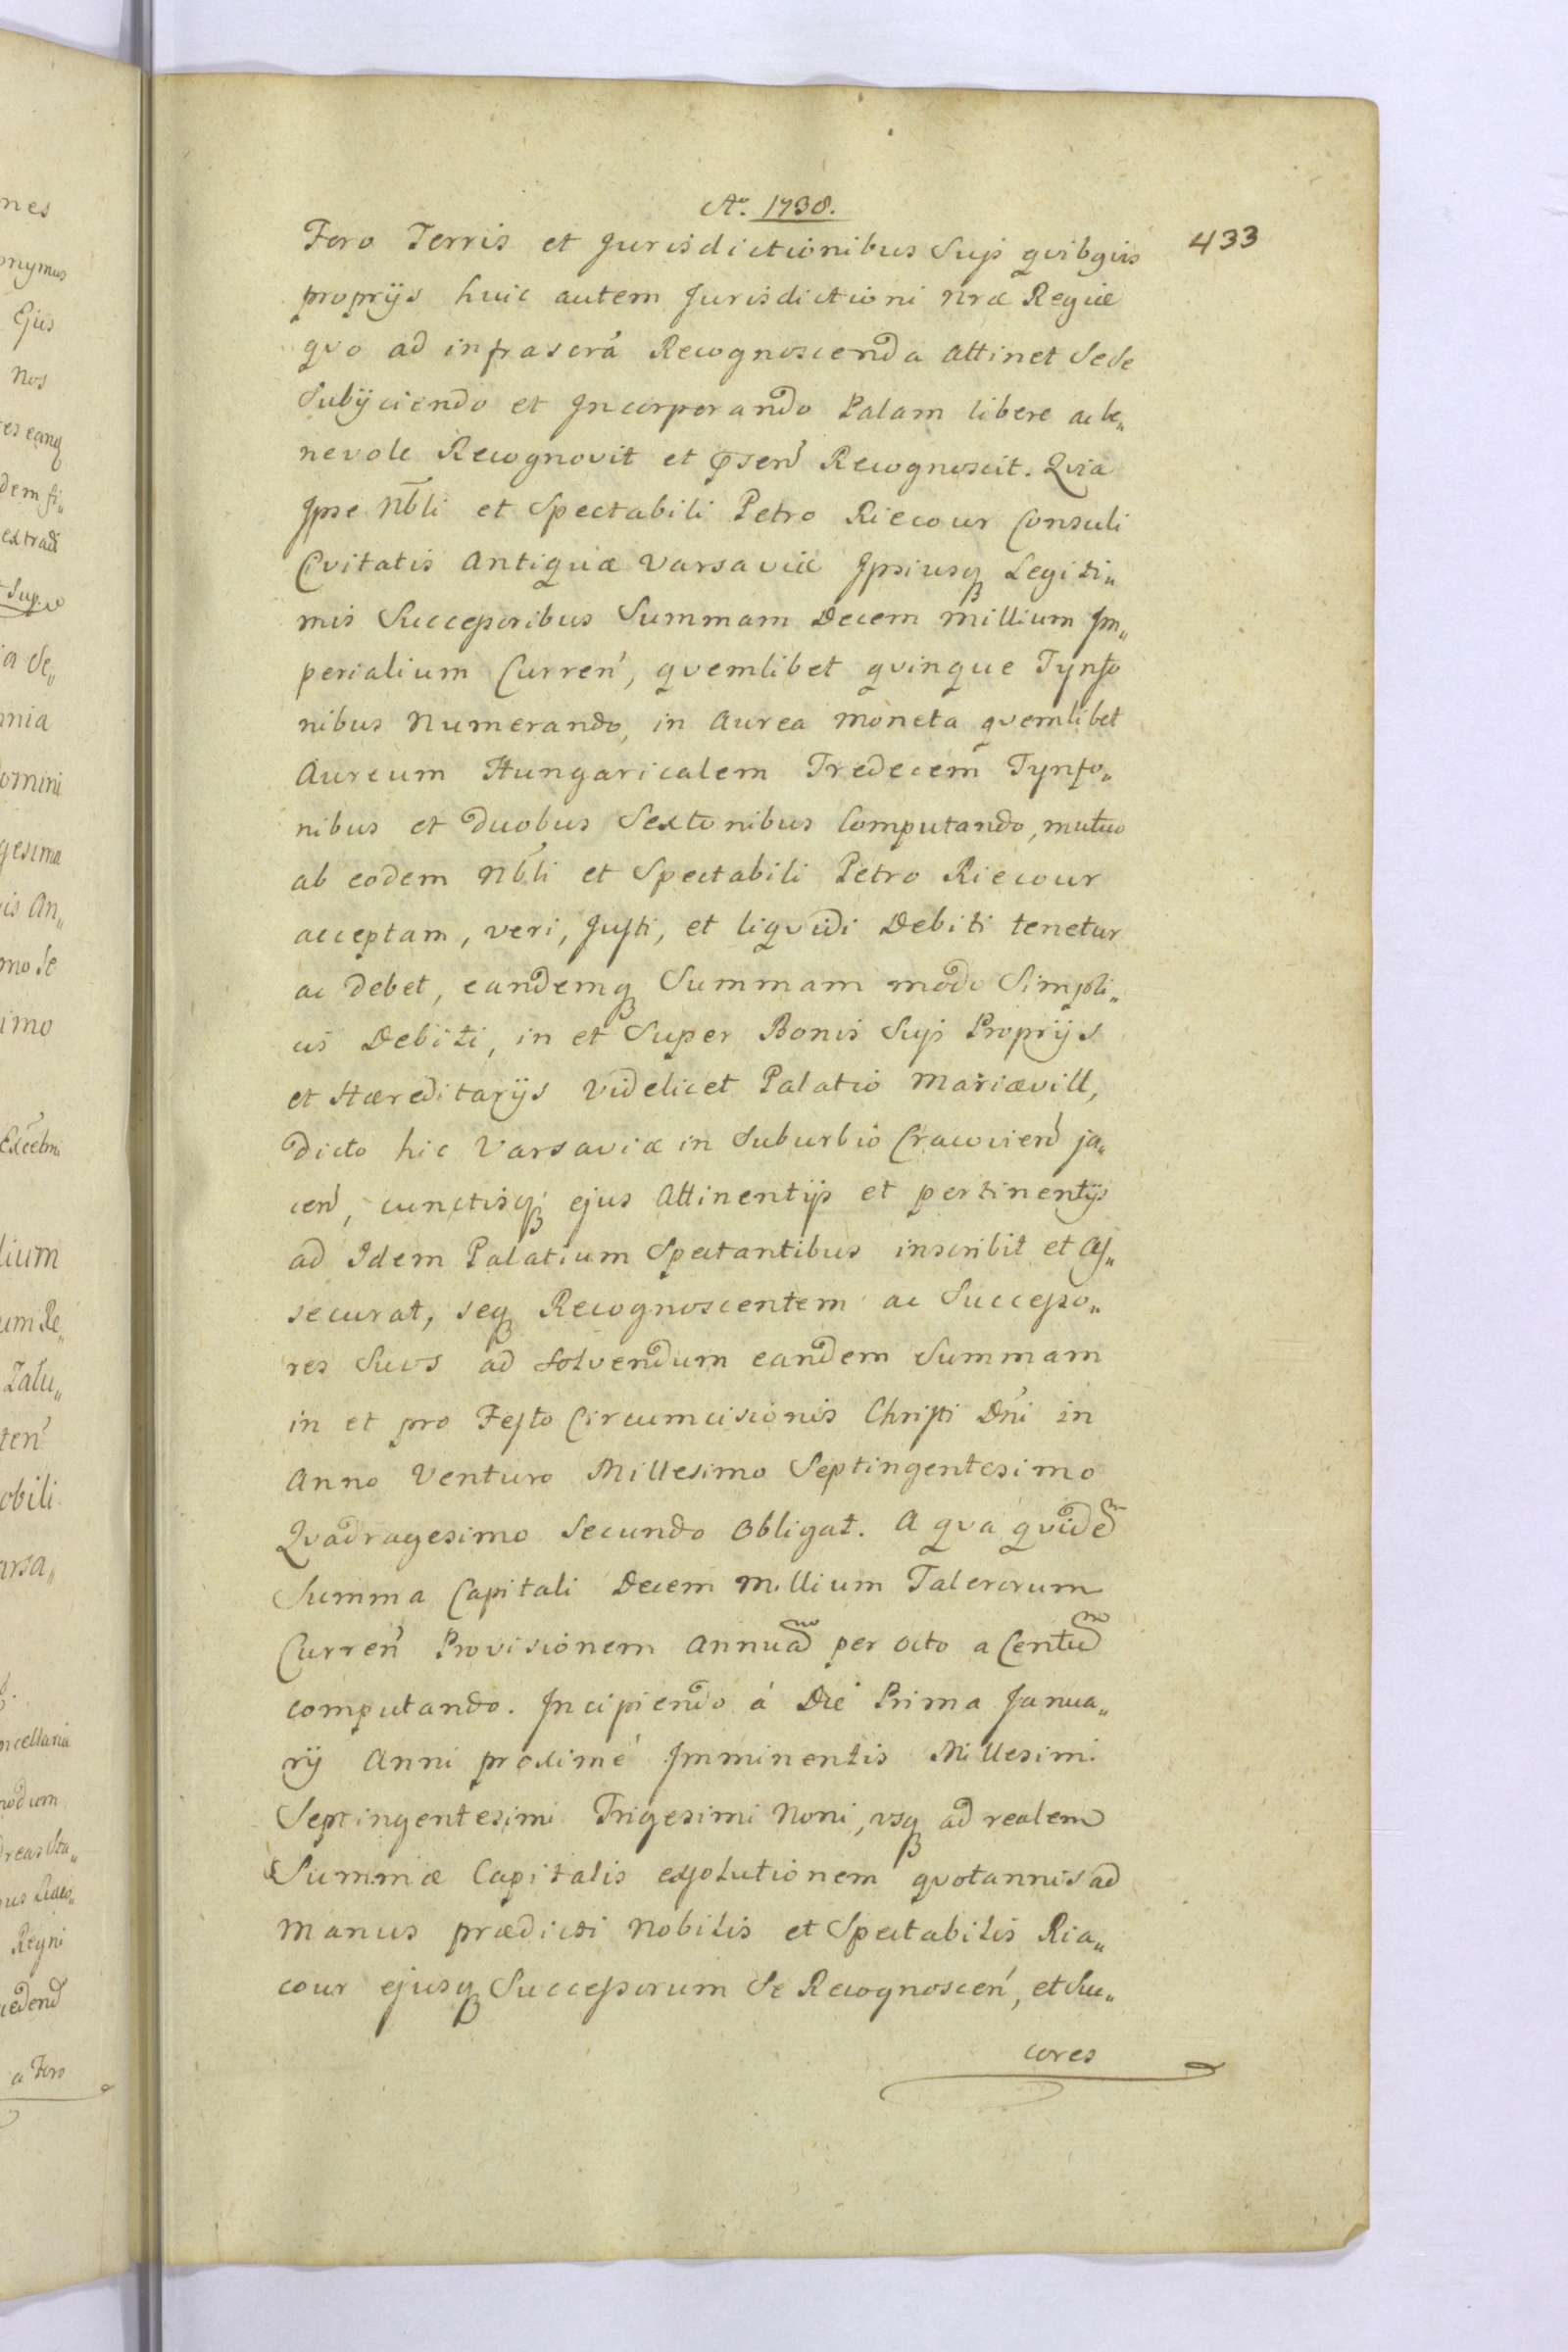 Ao. 1738.
433
Foro Terris et Jurisdictionibus Suis quibquis
proprijs huic autem Jurisdictioni nræ Regiæ
quo ad infrascrá Recognoscenda attinet Sese
Subÿciendo et Incorporando Palam libere ac be„
nevole Recognovit et pñsen Recognoscit. Quia
Ipse Nbli et Spectabili Petro Riecour Consuli
Cvitatis Antiquæ Varsaviæ Ipsiusq Legiti„
mis Successoribus Summam Decem millium Im„
perialium Curren, quemlibet quinque Tynfo
nibus Numerando, in Aurea moneta quemlibet
Aureum Hungaricalem Tredecem Tynfo„
nibus et duobus Sextonibus Computando, mutuo
ab eodem Nbli et Spectabili Petro Riecour
acceptam, veri, Justi, et liquidi Debiti tenetur
ac debet, eandemq Summam modo Simpli„
cis Debiti, in et Super Bonis Suis Proprijs
et Hæreditarijs videlicet Palatio Mariævill,
dicto hic Varsaviæ in Suburbio Cracovien ja„
cen, cunctisq ejus Attinentijs et pertinentijs
ad Idem Palatium Spectantibus inscribit et As„
securat, seq Recognoscentem ac Successo„
res Suos ad Solvendum eandem Summam
in et pro Festo Circumcisionis Christi Dni in
Anno Venturo Millesimo Septingentesimo
Quadragesimo Secundo Obligat. A qua quidem
Summa Capitali Decem Millium Talerorum
Curren Provisionem Annuam per octo a Centum
computando. Incipiendo á Die Prima Janua„
rÿ Anni proximé Imminentis Millesimi
Septingentesimi Trigesimi Noni, usq ad realem
Summæ Capitalis exsolutionem quotannis ad
Manus prædicti Nobilis et Spectabilis Ria„
cour ejusq Successorum Se Recognoscen, et Suc„
cores